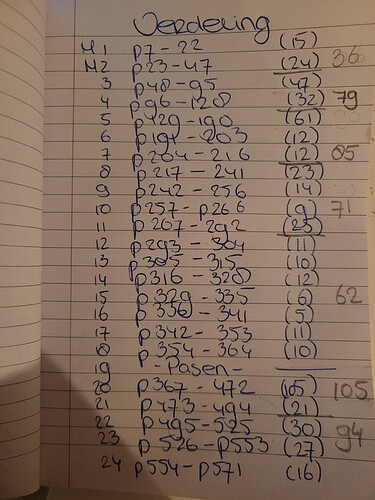 Verdering
H 1 p7 - 22 (15)
H2 p23 - 47 (24) 36
3 p48 - 95 (47)
4 p96 - 128 (32) 79
5 p129 - 190 (61)
6 p191 - 203 (12)
7 p204 - 216 (12) 85
8 p217 - 241 (23)
9 p242 - 256 (14)
10 p257 - p266 (9) 71
11 p267 - 292 (25)
12 p293 - 304 (11)
13 p305 - 315 (10)
14 p316 - 328 (12)
15 p329 - 335 (6) 62
16 p336 - 341 (5)
17 p342 - 353 (11)
18 p354 - 364 (10)
19 - Pasen -
20 p367 - 472 (105) 105
21 p473 - 494 (21)
22 p495 - 525 (30) 94
23 p526 - p553 (27)
24 p554 - p571 (16)